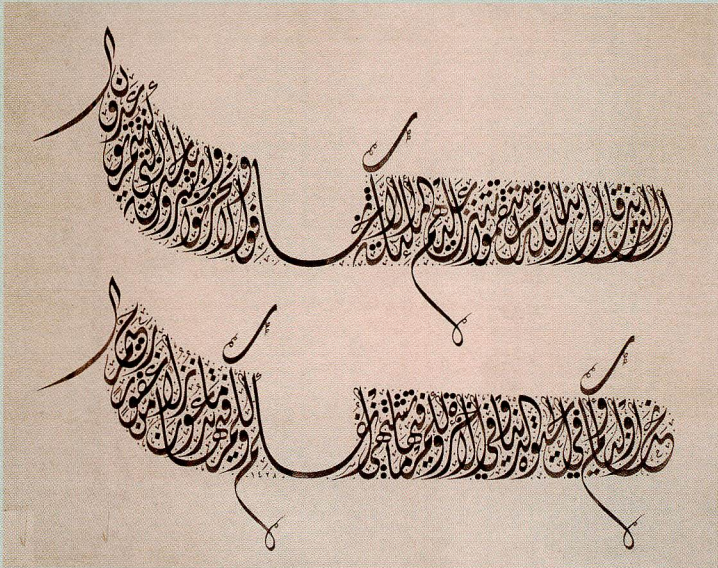 إن الذين قالوا ربنا الله ثم استقموا تتنزل عليهم الملائكة ألا تخافوا ولا تحزنوا وأبشروا بالجنة التي كنتم توعدون
نحن أولياؤكم في الحيوة الدنيا وفي الآخرة ولكم فيها ما تشتهي أنفسكم ولكم فيها ما تدعون نزلا من غفور رحيم
١٤٢٨